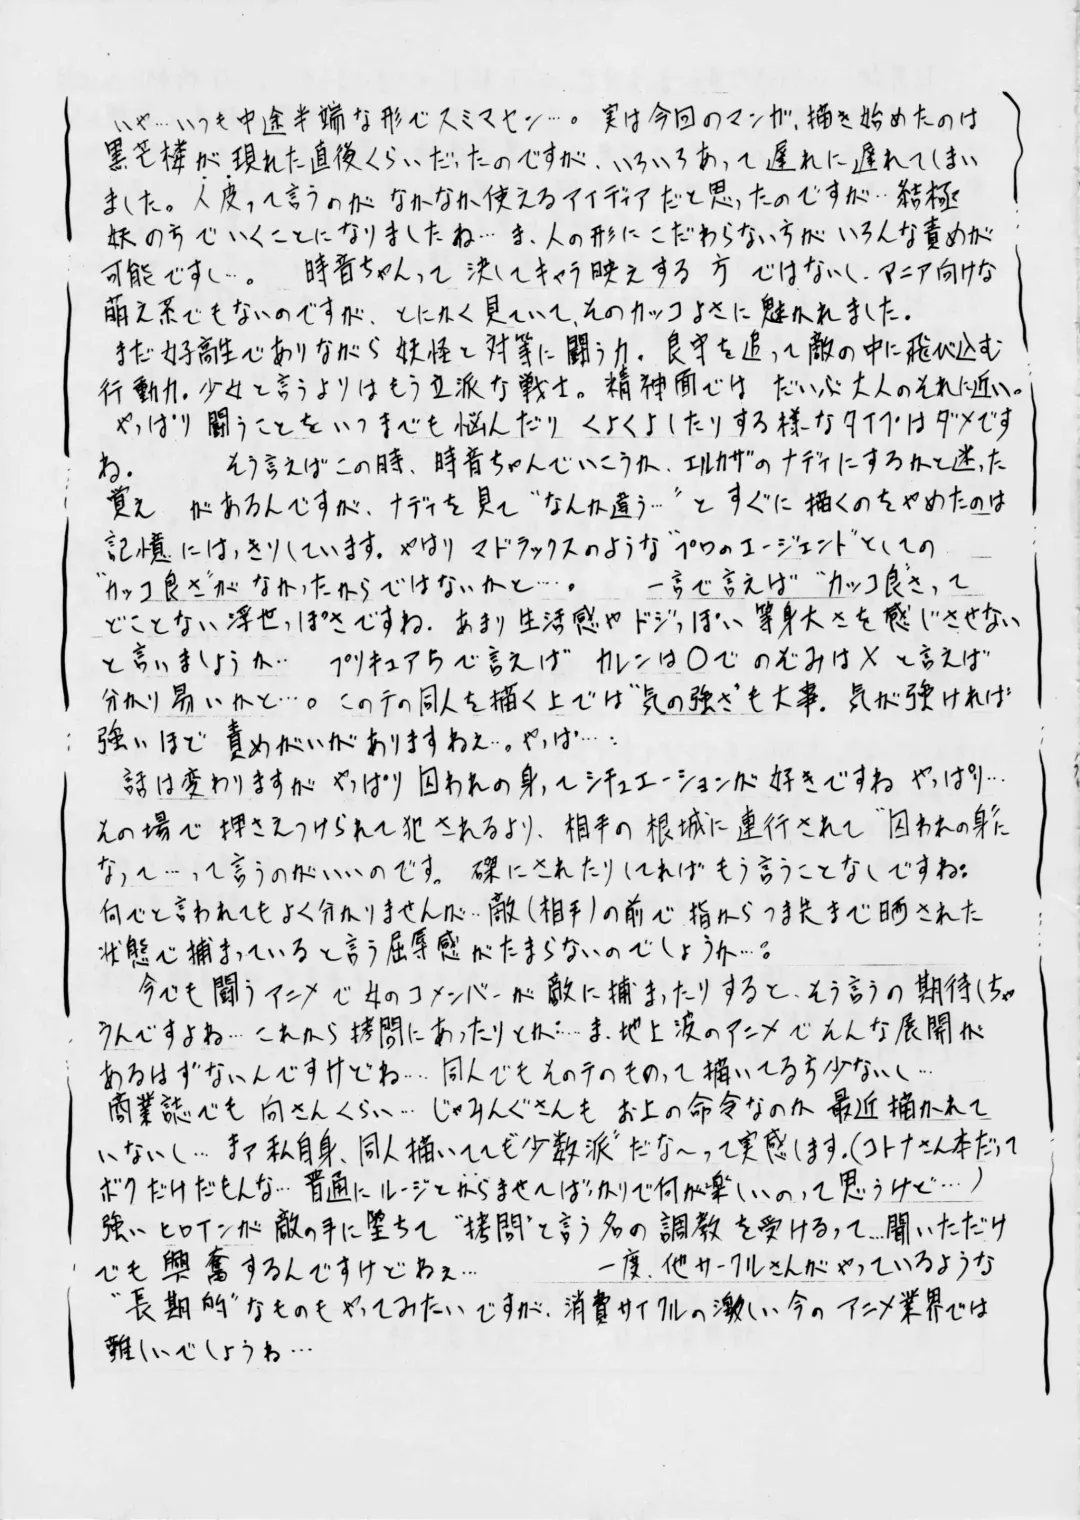 いや…いつも中途半端な形でスミマセン…。実は今回のマンガ、描き始めたのは
黒芒楼が現れた直後くらいだったのですが、いろいろあって遅れに遅れてしまい
ました。人皮って言うのがなかなか使えるアイディアだと思ったのですが…結極
妖の方でいくことになりましたね…ま、人の形にこだわらない方がいろんな責めが
可能ですし…。 時音ちゃんって決してキャラ映えする方ではないし、マニア向けな
萌え系でもないのですが、とにかく見ていて、そのカッコよさに魅かれました。
まだ女子高生でありながら妖怪と対等に闘う力。良守を追って敵の中に飛び込む
行動力。少女と言うよりはもう立派な戦士。精神面では だいぶ大人のそれに近い。
やっぱり闘うことをいつまでも悩んだりくよくよしたりする様なタイプはダメです
ね。 そう言えばこの時、時音ちゃんでいこうか、エルカザのナディにするかと迷った
覚え があるんですが、ナディを見て“なんか違う…”とすぐに描くのをやめたのは
記憶にはっきりしています。やはりマドラックスのような“プロのエージェント”としての
“カッコ良さ”がなかったからではないかと…。 一言で言えば“カッコ良”さって
どことない浮世っぽさですね。あまり生活感やドジっぽい等身大さを感じさせない
と言いましょうか… プリキュア5で言えば カレンは○でのぞみは×と言えば
分かり易いかと…。このテの同人を描く上では“気の強さ”も大事。気が強ければ
強いほど責めがいがありますねえ…。やっぱ…
話は変わりますがやっぱり囚われの身ってシチュエーションが好きですね やっぱり…
その場で押さえつけられて犯されるより、相手の根城に連行されて“囚われの身”に
なって…って言うのがいいのです。磔にされたりしてればもう言うことなしですね。
何でと言われてもよく分かりませんが…敵(相手)の前で指からつま先まで晒された
状態で捕まっていると言う屈辱感がたまらないのでしょうか…。
今でも闘うアニメで女のコメンバーが敵に捕まったりすると、そう言うの期待しちゃ
うんですよね…これから拷問にあったりとか…ま、地上波のアニメでそんな展開が
あるはずないんですけどね… 同人でもそのテのものって描いてる方少ないし…
商業誌でも 向さんくらい… じゃみんぐさんもお上の命令なのか最近描かれて
いないし… まァ私自身、同人描いてても“少数派”だな〜って実感します。(コトナさん本だって
ボクだけだもんな… 普通にルージとからませてばっかりで何が楽しいのって思うけど…)
強いヒロインが敵の手に堕ちて“拷問”と言う名の調教を受けるって…聞いただけ
でも興奮するんですけどねぇ… 一度、他サークルさんがやっているような
“長期的”なものもやってみたいですが、消費サイクルの激しい今のアニメ業界では
難しいでしょうね…